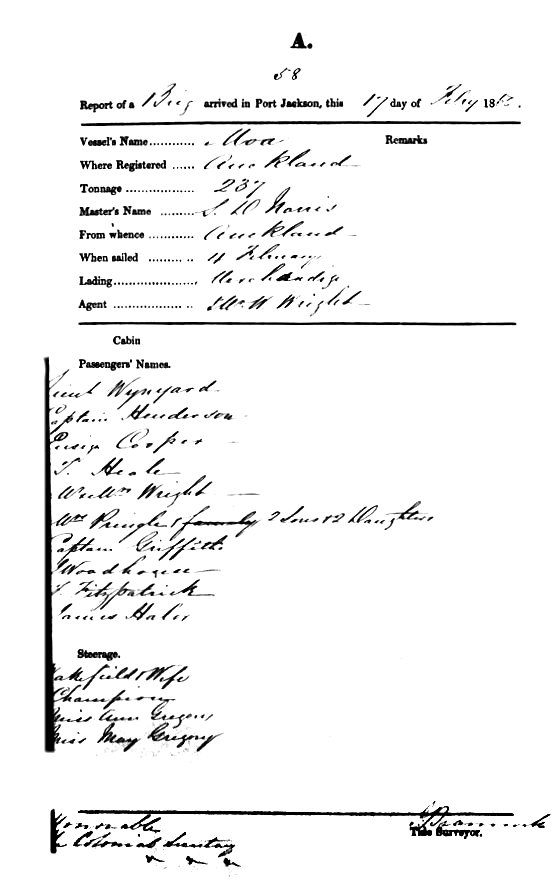 A.
58
Report of a Brig arrived in Port Jackson, this 17 day of Feby 185
Vessel's Name............ Moa
Remarks
Where Registered ...... Auckland
Tonnage .................. 237
Master's Name ......... Norris
From whence ............ Auckland
When sailed ............ 4 February
Lading..................... Merchandize
Agent .................. Wright
Cabin
Passengers' Names.
Lieut Wynyard
Captain Henderson
Ensign Cooper
T. Heale
Wright
Pringle & family 2 Sons & 2 Daughters
Captain Griffiths
Woodhouse
Fitzpatrick
James Haler
Steerage.
Wakefield & Wife
Champion
Miss Ann Gregory
Miss May Gregory
Honorable
The Colonial Secretary
Tide Surveyor.